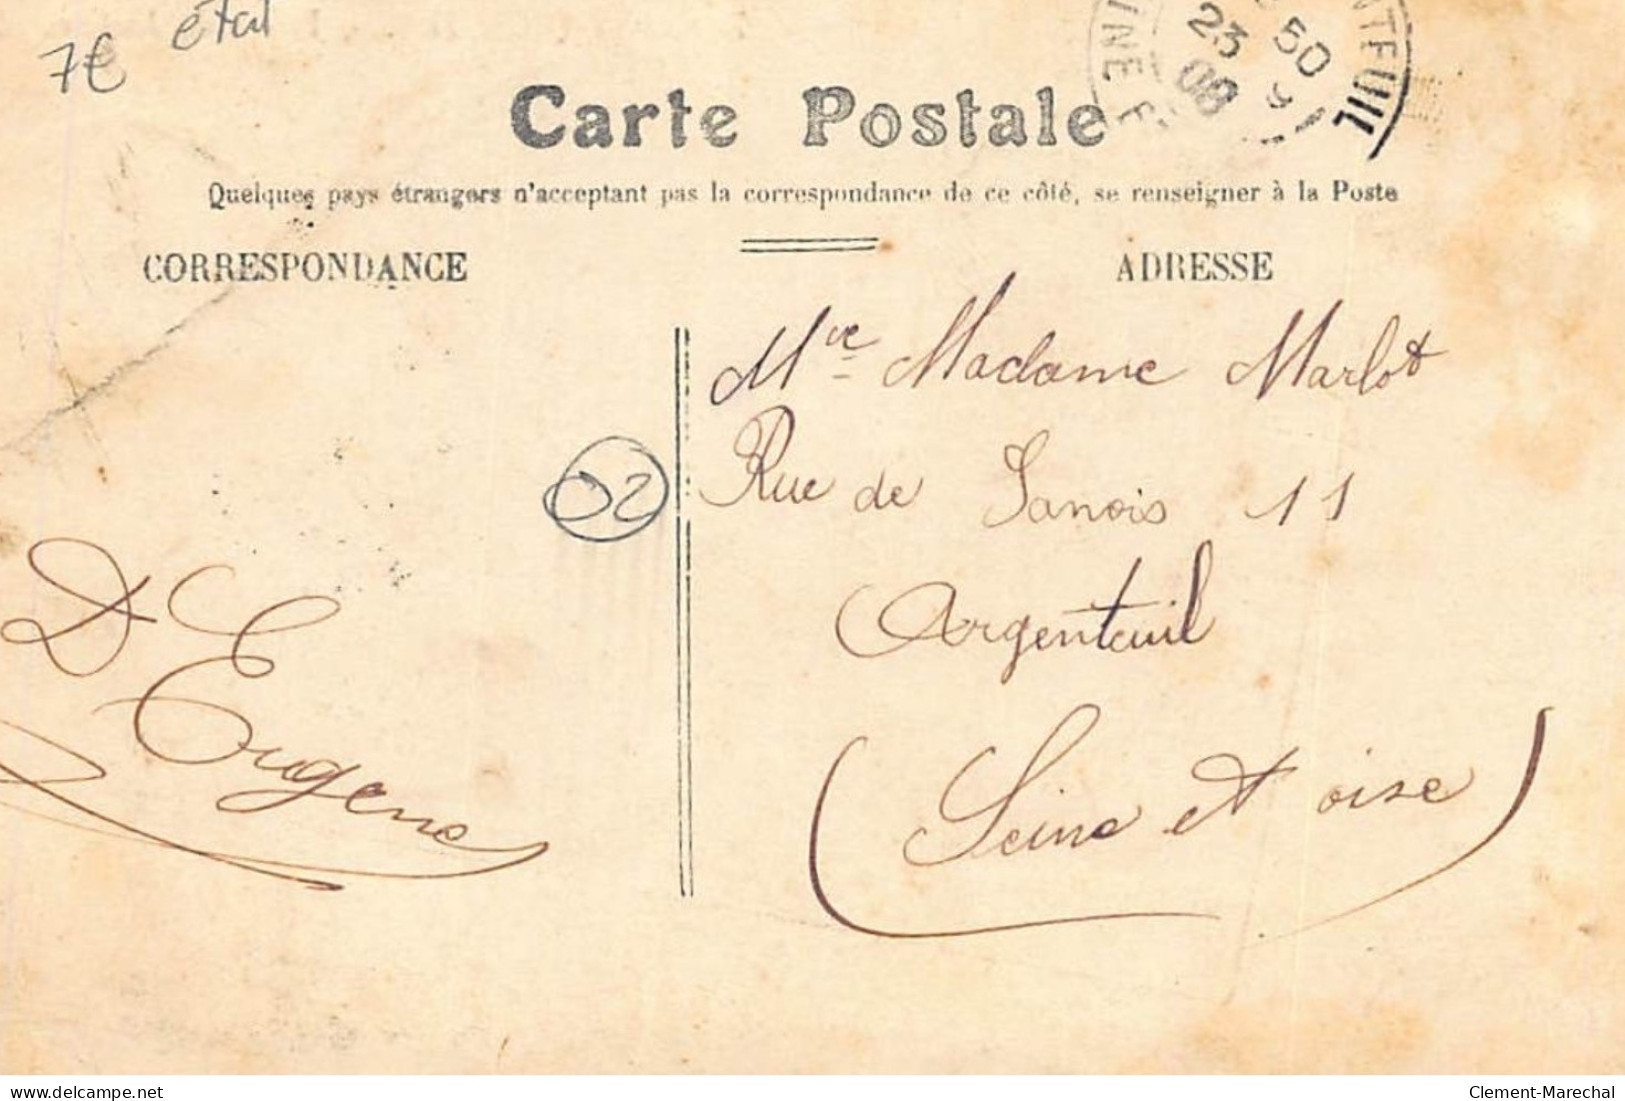 7€ état
NTEUIL
50
23
08
Carte Postale
Quelques pays étrangers n'acceptant pas la correspondance de ce côté, se renseigner à la Poste
CORRESPONDANCE
ADRESSE
Mve Madame Marlot
Rue de Sanois 11
02
Argenteuil
D Eugene
(Seine et oise)
www.delcampe.net
Clement-Marechal